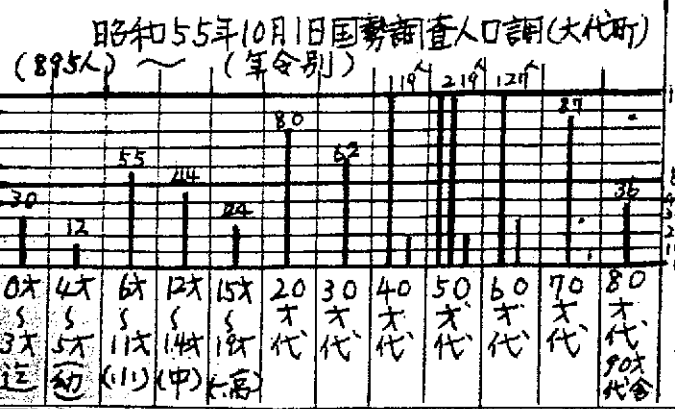 昭和55年10月1日国勢調査人口調(大代町)
(895人) 〜 (年令別)
119人 219人 127人
30 12 55 44 24 80 62 87 36
0才〜3才迄
4才〜5才(幼)
6才〜11才(小)
12才〜14才(中)
15才〜19才(高)
20才代
30才代
40才代
50才代
60才代
70才代
80才代90才代含